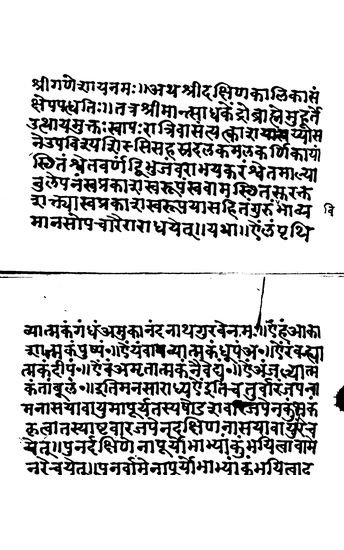 श्रीगणेशायनमः॥अथश्रीदक्षिणकालिकासं
क्षेपपद्धतिः॥तत्रश्रीमान्साधकेंद्रोब्राह्मेमुहूर्ते
उत्थायमुक्तस्वापः रात्रिवासत्यत्का
नेउपविश्यशिरसिसहस्रदलकमलकर्णिकायां
स्थितंश्वेतवर्णद्विभुजंवराभयकरंश्वेतमाल्या
नुलेपनंस्वप्रकाशस्वरूपंस्ववामस्थितसुरक्त
शक्त्यास्वप्रकाशस्वरूपयासहितंगुरुंभाव्य
वि
मानसोपचारैराराधयेत्॥यथा॥ऐंलंपृथि
व्यात्मकंगंधंअमुकानंदनाथगुरवेनमः॥ऐंहंआका
शात्मकंपुष्पं॰॥ऐंयंवाय्वात्मकंधूपंअ॰॥ऐंरंवह्न्या
त्मकंदीपं॰॥ऐंवंअमृतात्मकंनैवेद्यं॰॥
कंतांबूलं॰॥इतिमनसाराध्यऐंइतिचतुर्वारजपेनवा
मनासयावायुमापूर्यतस्यषोडशवारजपेनकुंभकं
कृत्वातस्याष्टवारजपेनदक्षिणनासयावायुंरेच
येत्॥पुनर्दक्षिणेनापूर्योभाभ्यांकुंभयित्वावाम
नरेचयेत्॥पुनर्वामेनापूर्योभाभ्यांकुंभयित्वाद